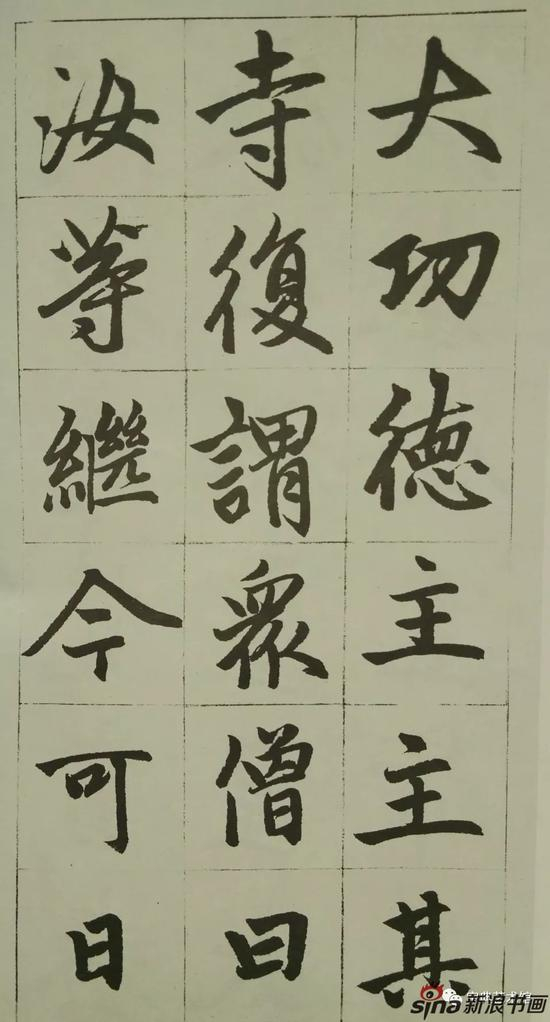 大功德主主其
寺復謂眾僧曰
汝等繼今可日
sina新浪书画